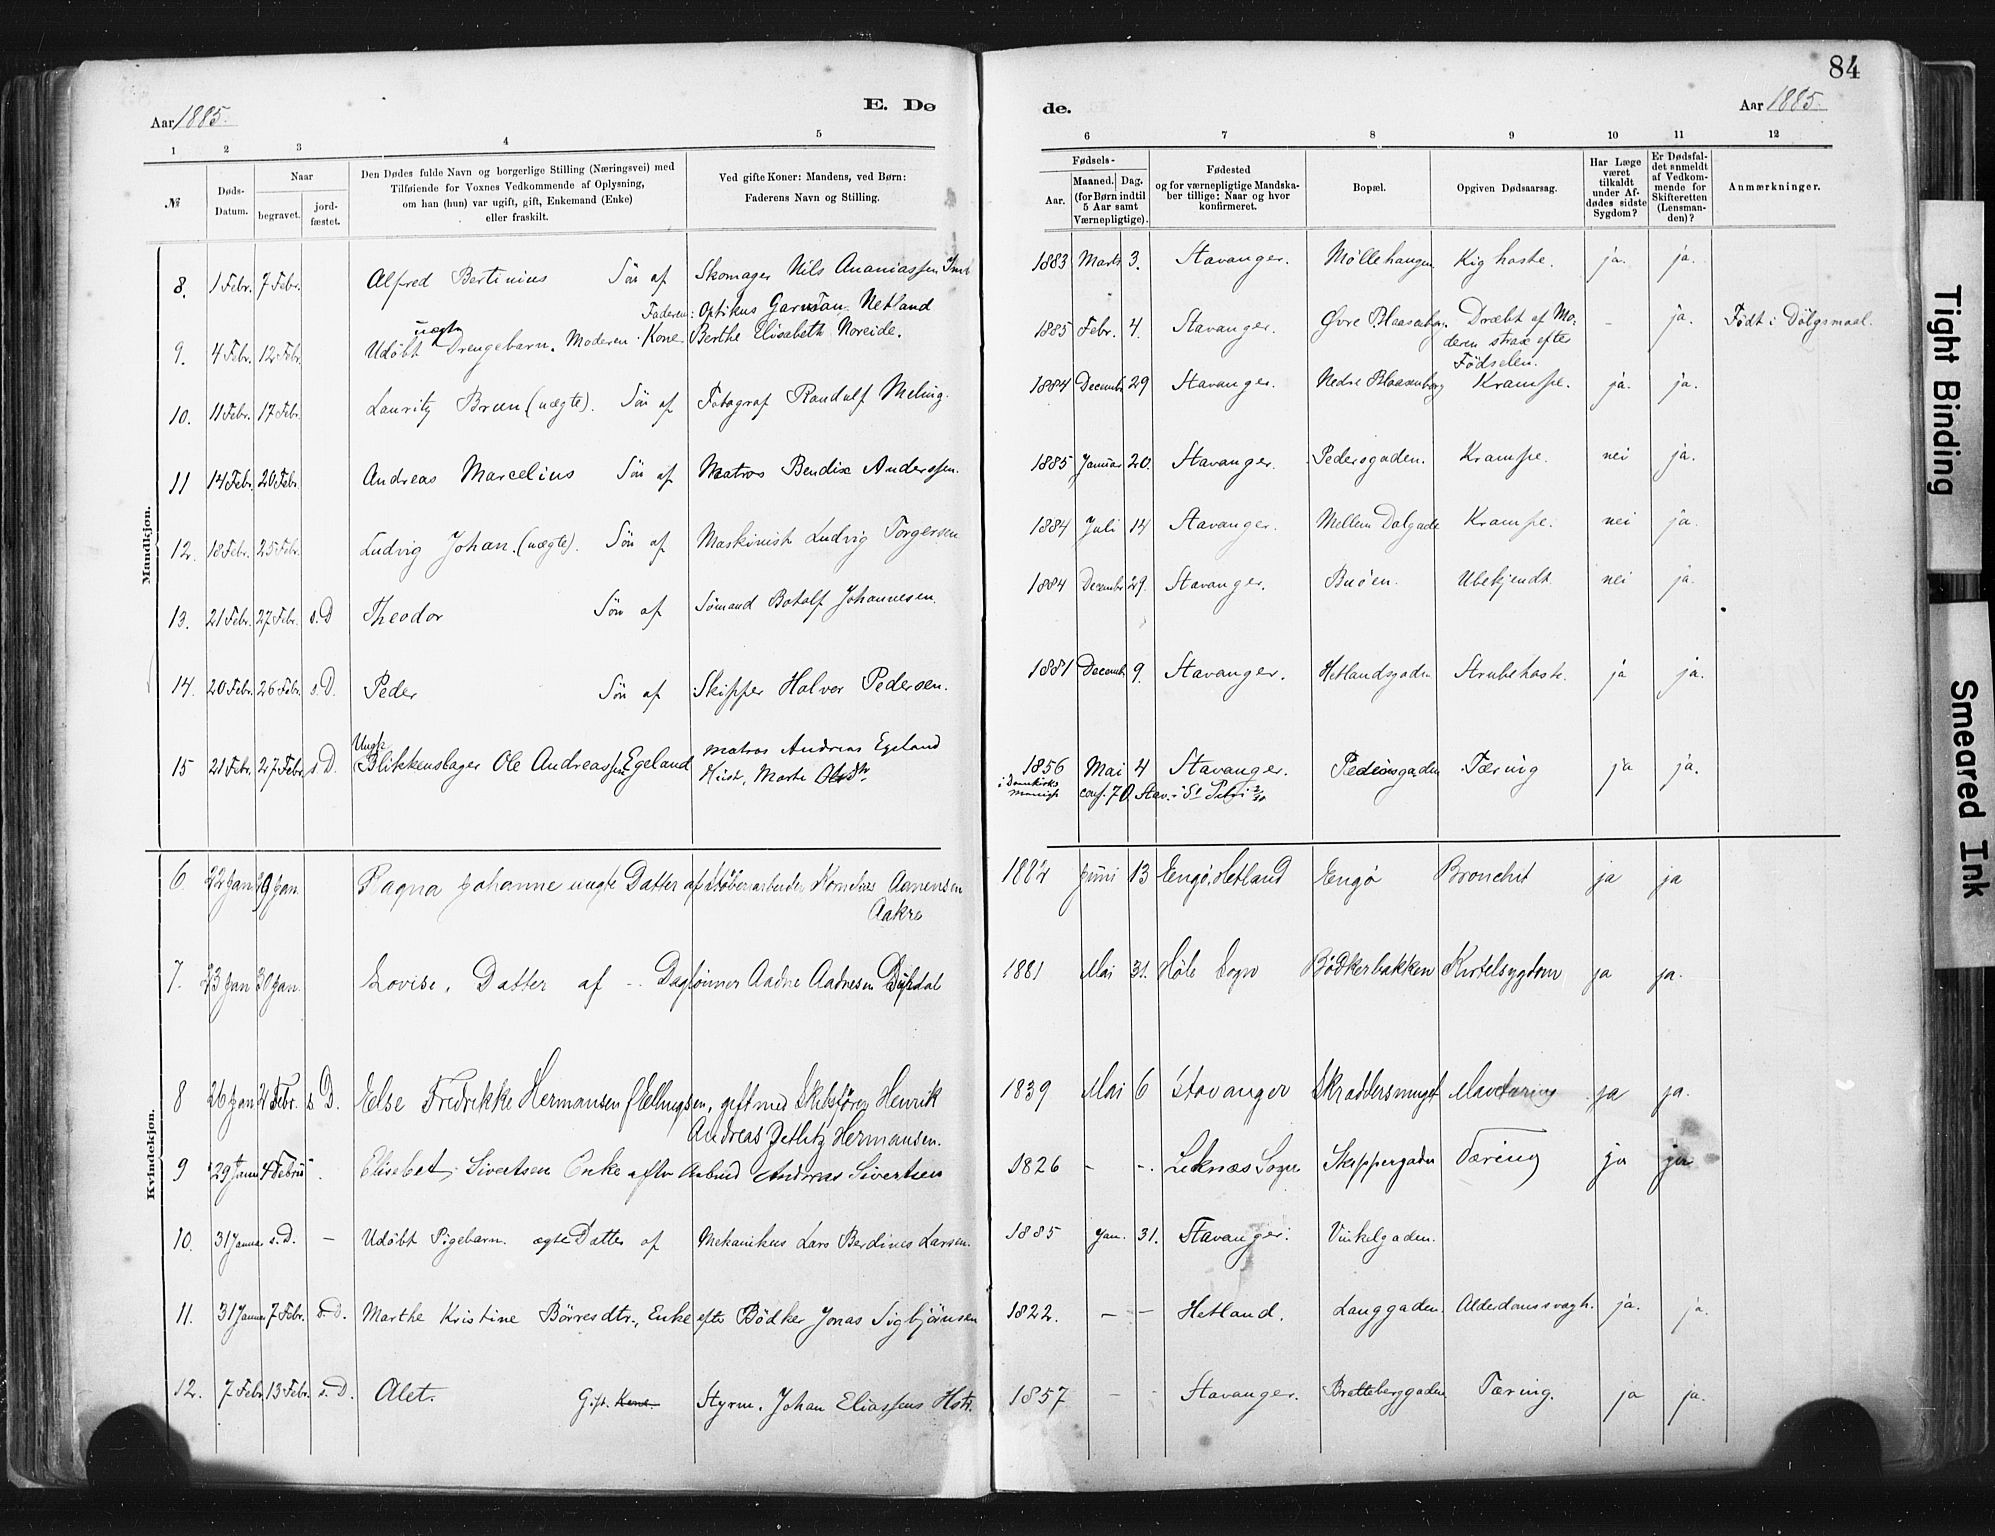 84
Aar 1885.
E. Dø
de.
Aar 1885.
1 2 3 4 5 6 7 8 9 10 11 12
№
Døds-Datum.
Naar
begravet.
jord-fæstet.
Den Dødes fulde Navn og borgerlige Stilling (Næringsvei) med
Tilføiende for Voxnes Vedkommende af Oplysning,
om han (hun) var ugift, gift, Enkemand (Enke)
eller fraskilt.
Ved gifte Koner: Mandens, ved Børn:
Faderens Navn og Stilling.
Fødsels-
Aar.
Maaned. Dag.
(for Børn indtil
5 Aar samt
Værnepligtige).
Fødested
og for værnepligtige Mandska-
ber tillige; Naar og hvor
konfirmeret.
Bopæl.
Opgiven Dødsaarsag.
Har Læge
været
tilkaldt
under Af-
dødes sidste
Sygdom?
Er Dødsfal-
det anmeldt
af Vedkom-
mende for
Skifteretten
(Lensman-
den)?
Anmærkninger.
Mandkjøn.
8. 1 Febr. 7 Febr. Alfred Bertinius Søn af Skomager Nils Ananiassen 1883 Marts 3. Stavanger. Möllehaugen Kighoste. ja. ja.
Faderen: Optikus Garman Netland
9. 4 Febr. 12 Febr. Udøbt uægte Drengebarn. Moderen: Kone Berthe Elisabeth Noreide. 1885 Febr. 4. Stavanger. Øvre Blaasenborg. Dræbt af Mo-
deren strax efter
Födselen. - ja. Födt i Dölgsmaal.
10. 11 Febr. 17 Febr. Lauritz Brun (uægte). Søn af Fotograf Randulf Meling. 1884 Decembr 29 Stavanger. Nedre Blaasenborg Krampe. ja. ja.
11 14 Febr. 20 Febr. Andreas Marcelius Søn af Matros Bendix Anderssen. 1885 Januar 20. Stavanger. Pedersgaden. Krampe. nei ja.
12. 18 Febr. 25 Febr. Ludvig Johan. (uægte). Søn af Maskinist Ludvig Torgersen 1884 Juli 14 Stavanger. Mellem Dalgade Krampe. nei ja.
13. 21 Febr. 27 Febr. s.D Theodor Søn af Sömand Botolf Johannesen. 1884 Decembr 29. Stavanger. Buöen. Ubekjendt. nei ja.
14. 20 Febr. 26 Febr. s.D. Peder Søn af Skipper Halvor Pedersen. 1881 Decembr 9. Stavanger. Hetlandsgaden Strubehoste. ja ja.
15 21 Febr. 27 Febr. s.D. Ungk. Blikkenslager Ole Andreassen Egeland matros Andreas Egeland
Hust. Marte Olsdtr. 1856 Mai 4 Stavanger. Pedersgaden Tæring ja ja.
i Domkirks
menigh conf. 70 Stav. i St Petri 2/10
Kvindekjøn.
6. 22 Jan 29 Jan. Ragna Johanne uægte Datter af Støberiarbeider Kornelius Aamensen
Aakre 1882 Juni 13 Engø, Hetland Engø Bronchit ja ja
7. 23 Jan 30 Jan. Lovise, Datter af Daglønner Aadne Aadnesen 1881 Mai 31. Høle Sogn Bødkerbakken Kirtelsygdom ja ja.
8 26 Jan 4 Febr. s.D. Else Fredrikke Hermansen f Ellingsen, gift med Skibsfører Henrik
Andreas Zetlitz Hermansen. 1839 Mai 6 Stavanger Skraddersmuget Mavetæring ja ja.
9 29 Janu 4 Febru Elisebet Sivertsen Enke efter Arbmd Andreas Sivertsen 1826 - - Leknæs Sogn Skippergaden Tæring ja ja
10. 31 Januar s.D. - Udøbt Pigebarn. ægte Datter af Mekanikus Lars Berdines Larsen. 1885 Jan. 31. Stavanger. Vinkelgaden.
11. 31 Januar 7 Febr. s.D. Marthe Kristine Børresdtr., Enke efter Bödker Jonas Sigbjörnsen 1822. - - Hetland. Langgaden. Alderdomssvagh. ja. ja.
12. 7 Febr. 13 Febr. s.D. Alet. Gift. Kone. Styrm. Johan Eliassens Hstr. 1857 - - Stavanger. Bratteberggaden Tæring. ja ja.
Tight Binding
Smeared Ink